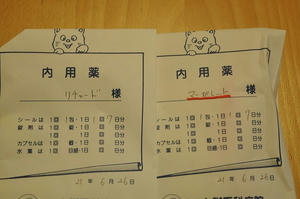 内用薬
リチャード 様
シールは 1回 1包・1日 回 7日分
錠剤は 1回 錠・1日 回 日分
1回 錠・1日 回 日分
カプセルは 1回 1日 回 日分
水薬は 1回 目盛・1日 回 日分
21年 6月 26日
内用薬
マーガレット 様
シールは 1回 1包・1日 回 7日分
錠剤は 1回 錠・1日 回 日分
1回 錠・1日 回 日分
カプセルは 1回 1日 回 日分
水薬は 1回 目盛・1日 回 日分
21年 6月 26日